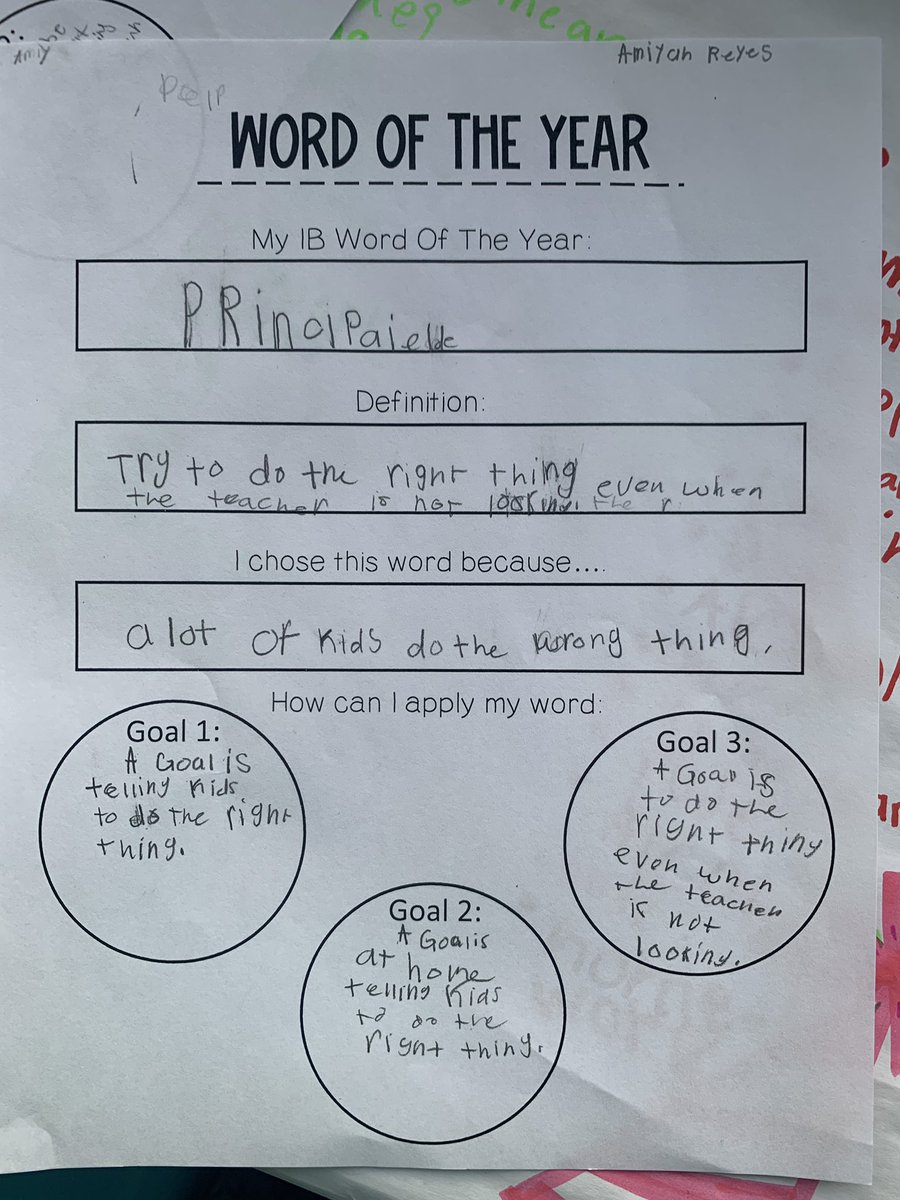 Amiyah Reyes
Amiy
WORD OF THE YEAR
My IB Word Of The Year:
PRincipaielde
Definition:
Try to do the right thing even when
the teacher is not looking. the r
I chose this word because....
a lot of kids do the wrong thing.
How can I apply my word:
Goal 1:
A Goal is
telling kids
to do the right
thing.
Goal 2:
A Goal is
at home
telling kids
to do the
right thing.
Goal 3:
A Goal is
to do the
right thing
even when
the teacher
is not
looking.